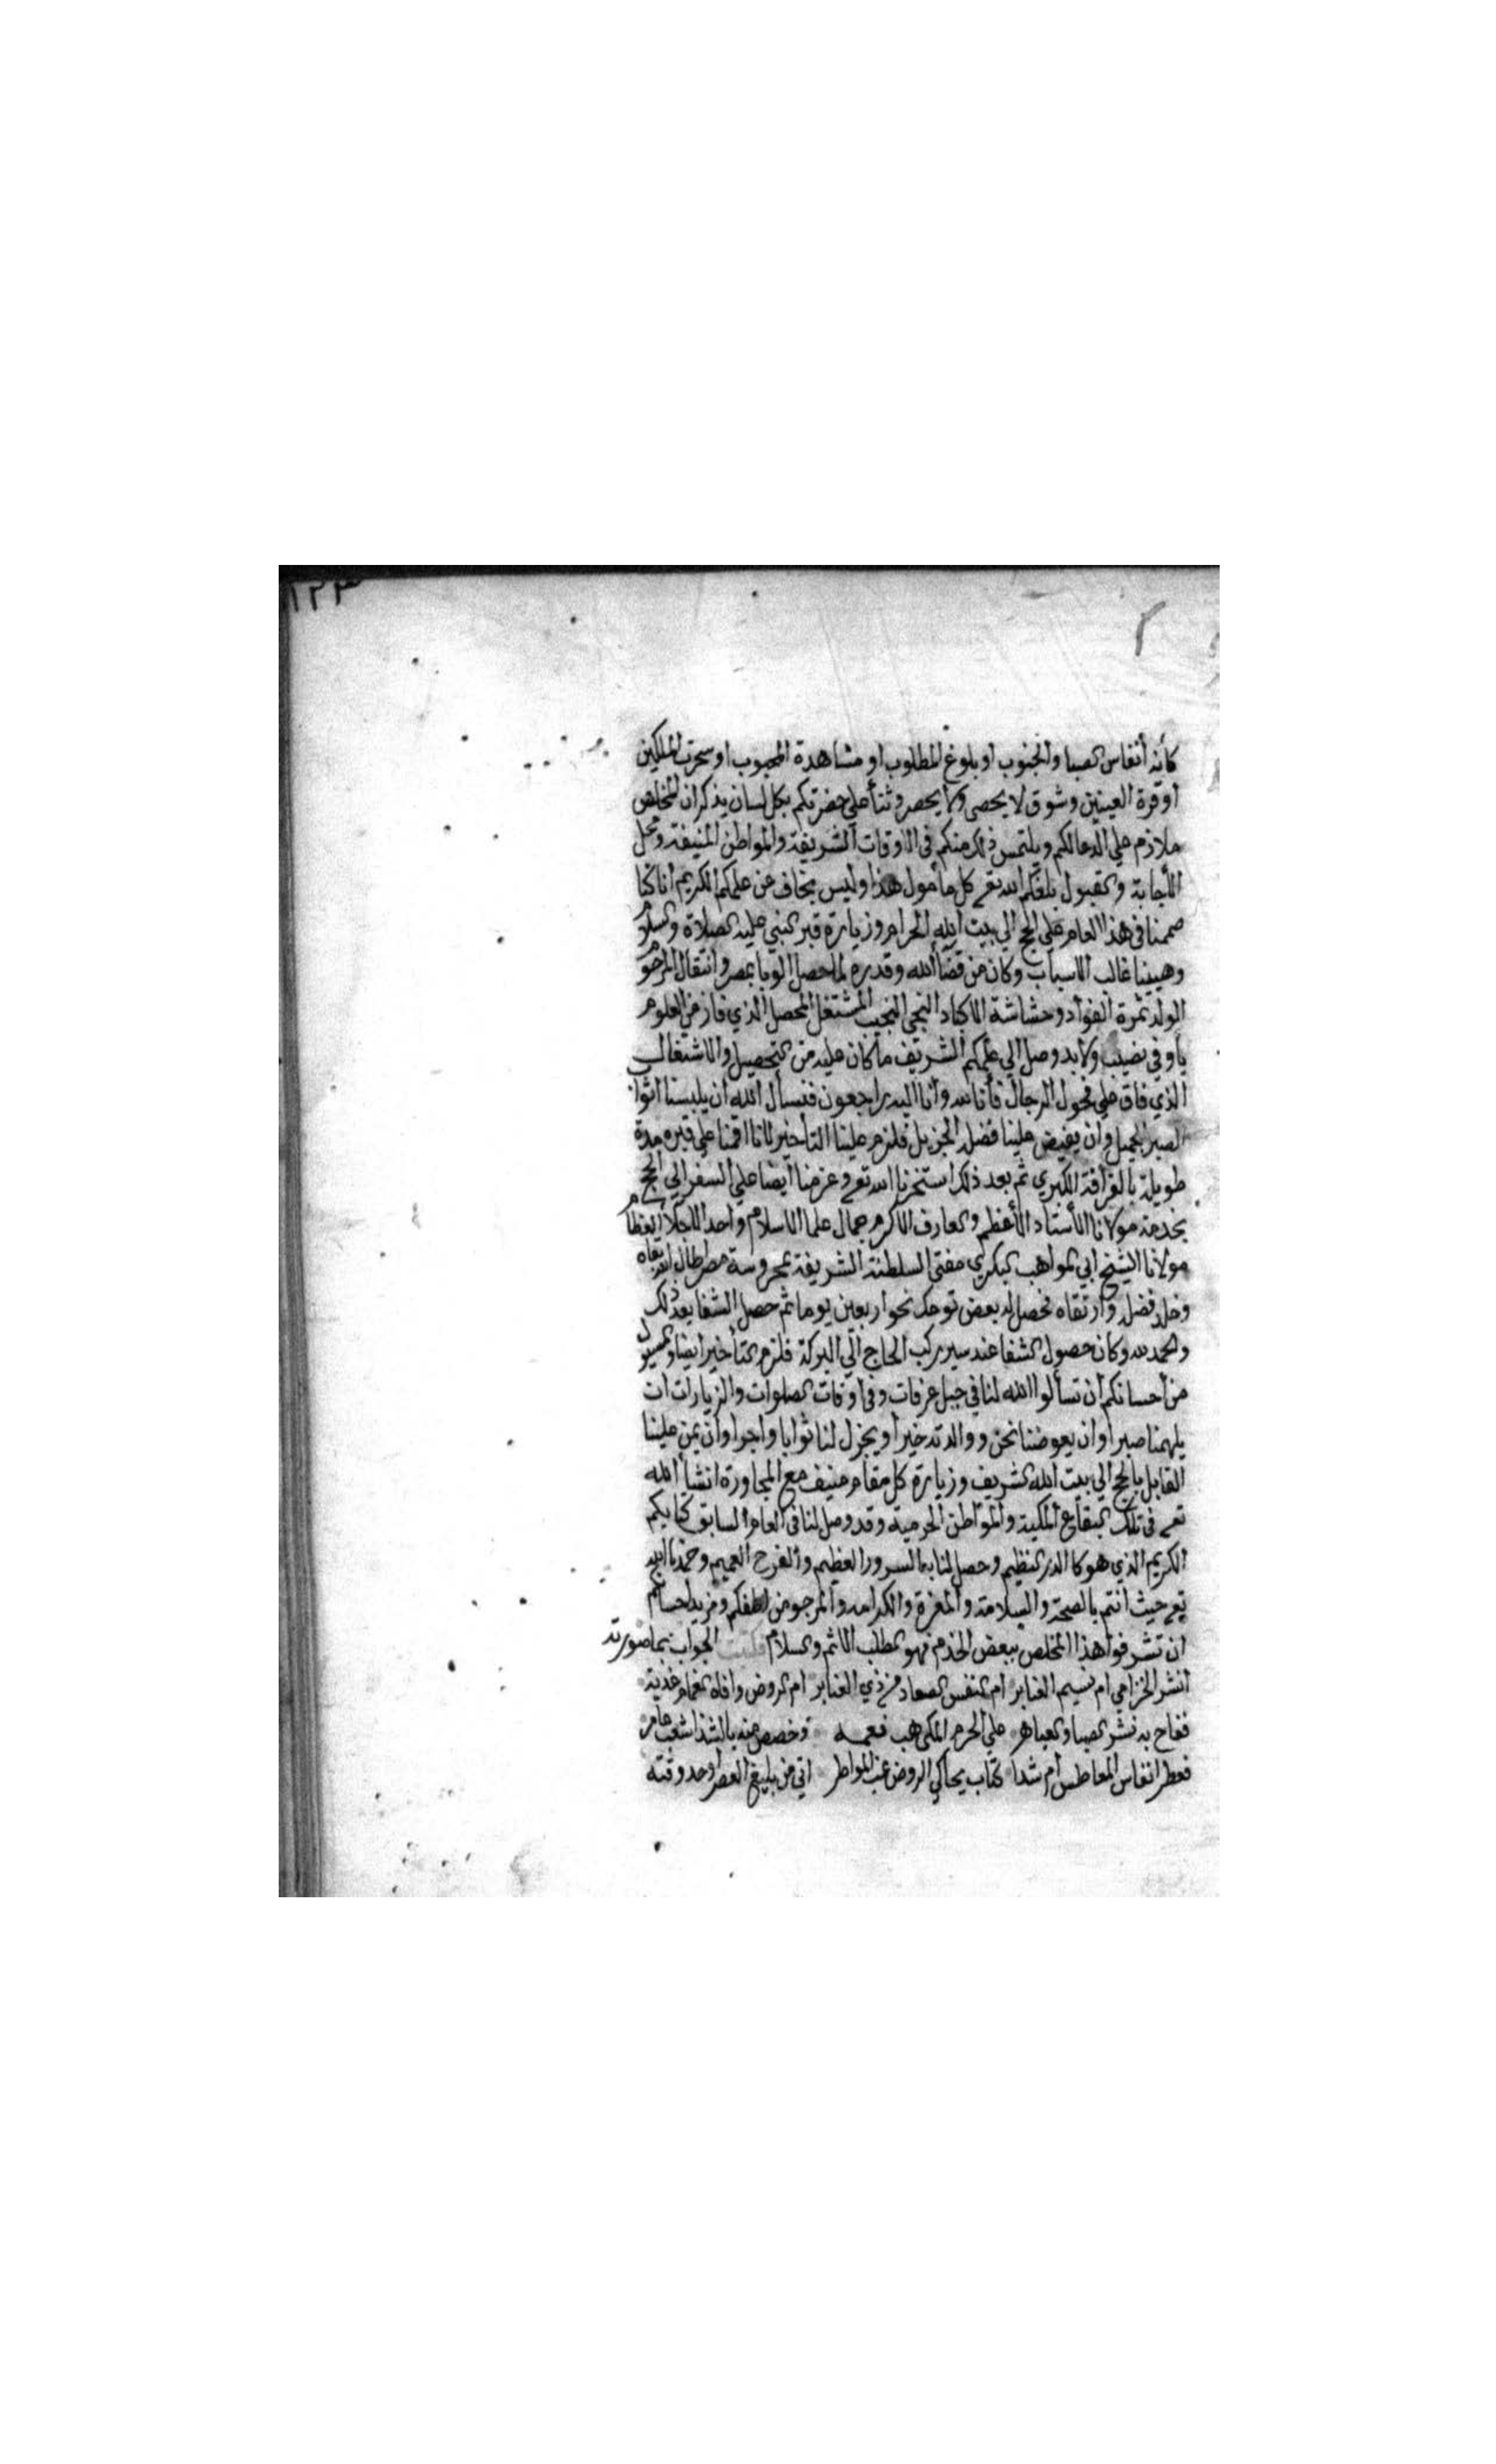 ١٢٣
كأنه أنفاس الصبا والجنوب او بلوغ المطلوب او مشاهدة المحبوب او سحرت الملكين
او قرة العينين وشوق لا يحصى ولا يحصر وثنأ علي حضرتكم بكل لسان يذكر ان المخلص
ملازم علي الدعا لكم ويلتمس ذلك منكم في الاوقات الشريفة والمواطن المنيفة ومحل
الأجابة والقبول بلغكم الله تعه كل مأمول هذا وليس بخاف عن علمكم الكريم انا كنا
صممنا في هذا العام علي الحج الي بيت الله الحرام وزيارة قبر النبي عليه الصلاة والسلام
وهيينا غالب الاسباب وكان من قضأ الله وقدره لما حصل الوبا بمصر وانتقال المرحوم
الولد ثمرة الفوأد وحشاشة الاكباد النجي النجيب المشتغل المحصل الذي فاز من العلوم
بأوفي نصيب ولابد وصل الي علمكم الشريف ما كان عليه من التحصيل والاشتغال
الذي فاق علي فحول الرجال فأنا لله وانا اليه راجعون فنسأل الله ان يلبسنا اثواب
الصبر الجميل وان يفيض علينا فضله الجزيل فلزم علينا التأخير لانا اقمنا علي قبره مدة
طويلة بالقرافة الكبري ثم بعد ذلك استخرنا الله تعه وعزمنا ايضا علي السفر الي الحج
بخدمة مولانا الأستاد الأعظم والعارف الاكرم جمال علما الاسلام واحد الاجلا العظام
مولانا الشيخ ابي المواهب البكري مفتي السلطنة الشريفة بمحروسة مصر اطال الله بقاه
وخلد فضله وارتقاه فحصل له بعض توعك نحو اربعين يوما ثم حصل الشفا بعد ذلك
والحمد لله وكان حصول الشفا عند سير ركب الحاج الي البركة فلزم التأخير ايضا والمسيول
من أحسانكم أن تسألوا الله لنا في جبل عرفات وفي اوقات الصلوات والزيارات ان
يلهمنا صبرا وان يعوضنا نحن ووالدته خيرا ويجزل لنا ثوابا واجرا وان يمن علينا
القابل بالحج الي بيت الله الشريف وزيارة كل مقام منيف مع المجاورة انشأ الله
تعه في تلك البقاع المكية والمواطن الحرمية وقد وصل لنا في العام السابق كتابكم
الكريم الذي هو كالدر النظيم وحصل لنا به السرور العظيم والفرح العميم وحمدنا الله
تعه حيث انتم بالصحة والسلامة والمعزة والكرامه والمرجو من لطفكم ومزيد احسانكم
ان تشرفوا هذا المخلص ببعض الخدم فهو المطلب الاتم والسلام فكتبت الجواب بما صورته
أنشر الخزامي ام نسيم العنابر ام النفس الصعاد من ذي العنابر ام الروض وافاه الغمام غدية
ففاح به نشر الصبا والعباهر علي الحرم المكي هب فعمه وخصص منه بالشذا شعب عامر
فعطر انفاس المعاطس أم شدا كتاب يحاكي الروض غب المواطر اتي من بليغ العصر اوحد وقته